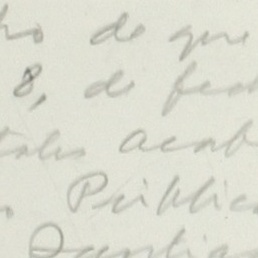 ho de que
8, de fech
tales acab
Públic
Santiag